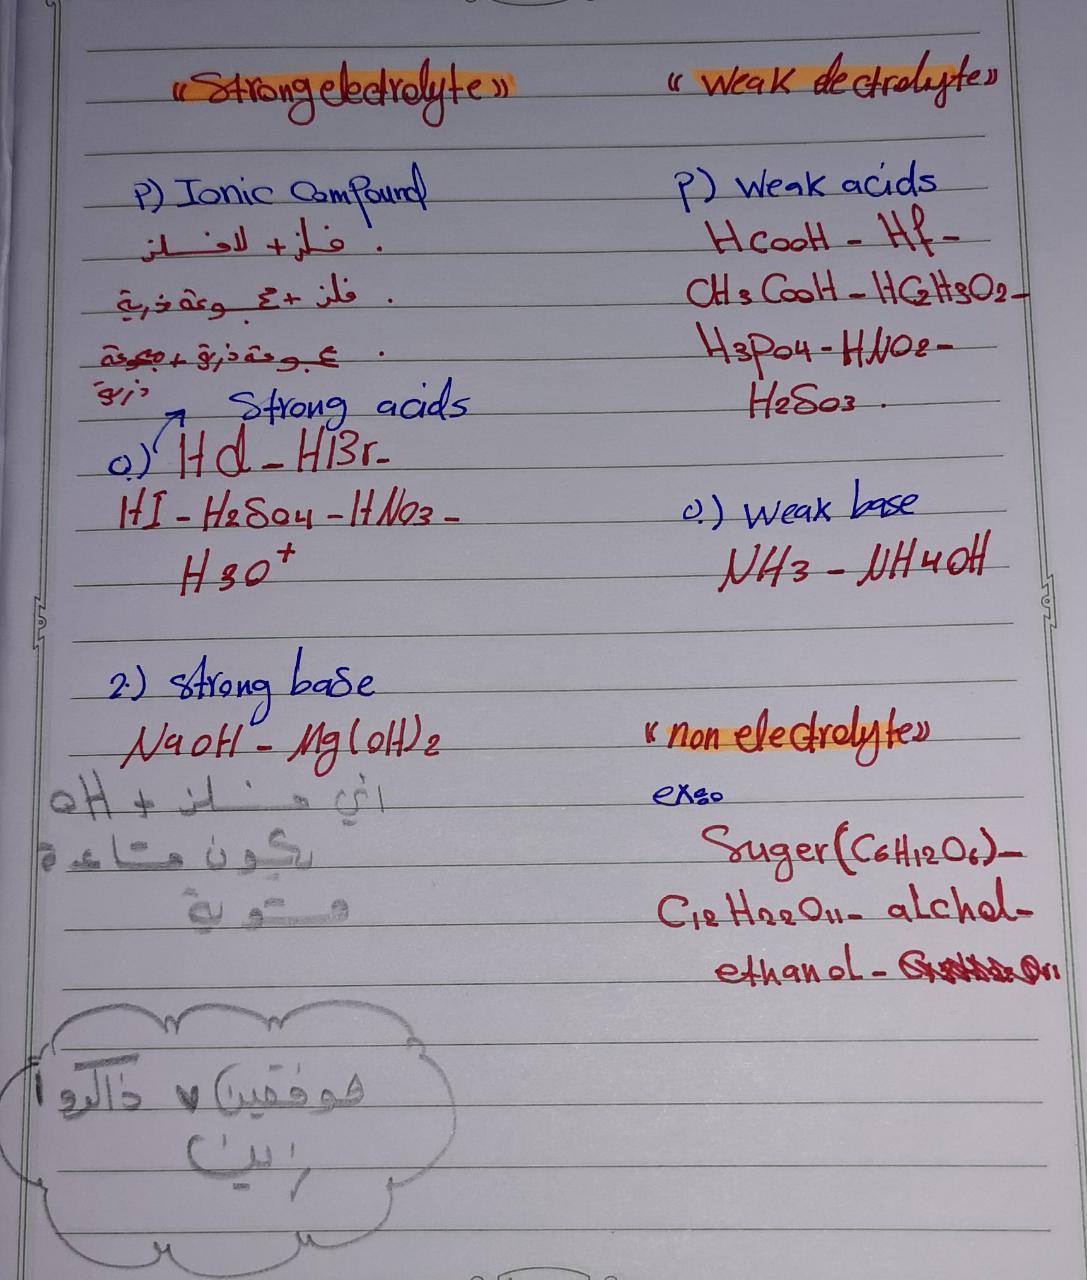 «Strong electrolyte»
P) Ionic Compound
. فلز + لافلز
. فلز + مجموعة ذرية
. مجموعة ذرية + مجموعة
ذرية
Strong acids
Hcl - HBr-
HI - H2So4 - HNo3 -
H3O+
2.) strong base
NaoH - Mg(oH)2
اني فلز + oH
يكون قاعدة
قوية
موفقين ♥ ذاكروا
زين
« weak electrolyte»
P) weak acids
HcooH - Hf -
CH3CooH - HC2H3O2 -
H3po4 - HNO2 -
H2So3 .
.) weak base
NH3 - NH4OH
«non electrolyte»
exs:
Suger(C6H12O6)-
C12H22O11- alchol-
ethanol-